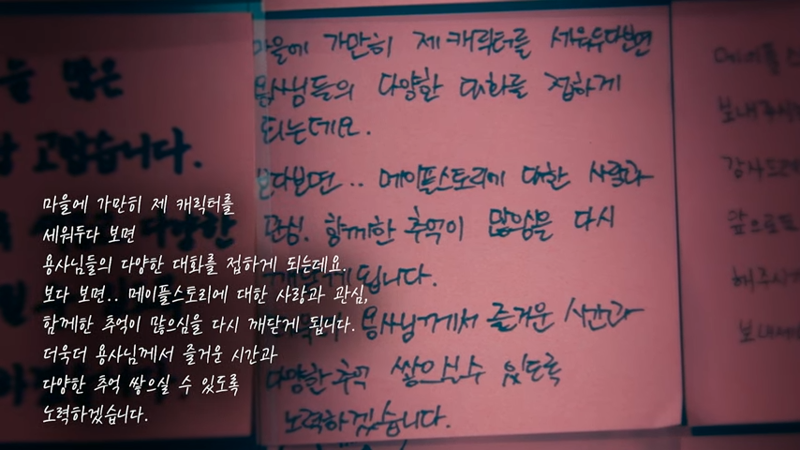 많은
고맙습니다.
마을에 가만히 제 캐릭터를 세워두다보면
용사님들의 다양한 대화를 접하게
되는데요.
보다보면.. 메이플스토리에 대한 사랑과
관심, 함께한 추억이 많으심을 다시
깨닫게 됩니다.
더욱더 용사님께서 즐거운 시간과
다양한 추억 쌓으실 수 있도록
노력하겠습니다.
메이플스
보내주시
감사드리
앞으로도
해주시
보내
마을에 가만히 제 캐릭터를
세워두다 보면
용사님들의 다양한 대화를 접하게 되는데요.
보다 보면.. 메이플스토리에 대한 사랑과 관심,
함께한 추억이 많으심을 다시 깨닫게 됩니다.
더욱더 용사님께서 즐거운 시간과
다양한 추억 쌓으실 수 있도록
노력하겠습니다.